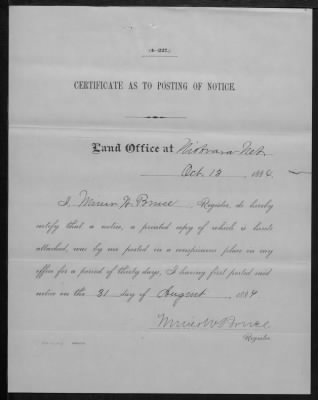 (4-227.)
CERTIFICATE AS TO POSTING OF NOTICE.
Land Office at Niobrara Neb
Oct. 13 1884
I, Minor W. Bruce, Register, do hereby
certify that a notice, a printed copy of which is hereto
attached, was by me posted in a conspicuous place in my
office for a period of thirty days, I having first posted said
notice on the 31 day of August, 1884
Minor W Bruce
Register.